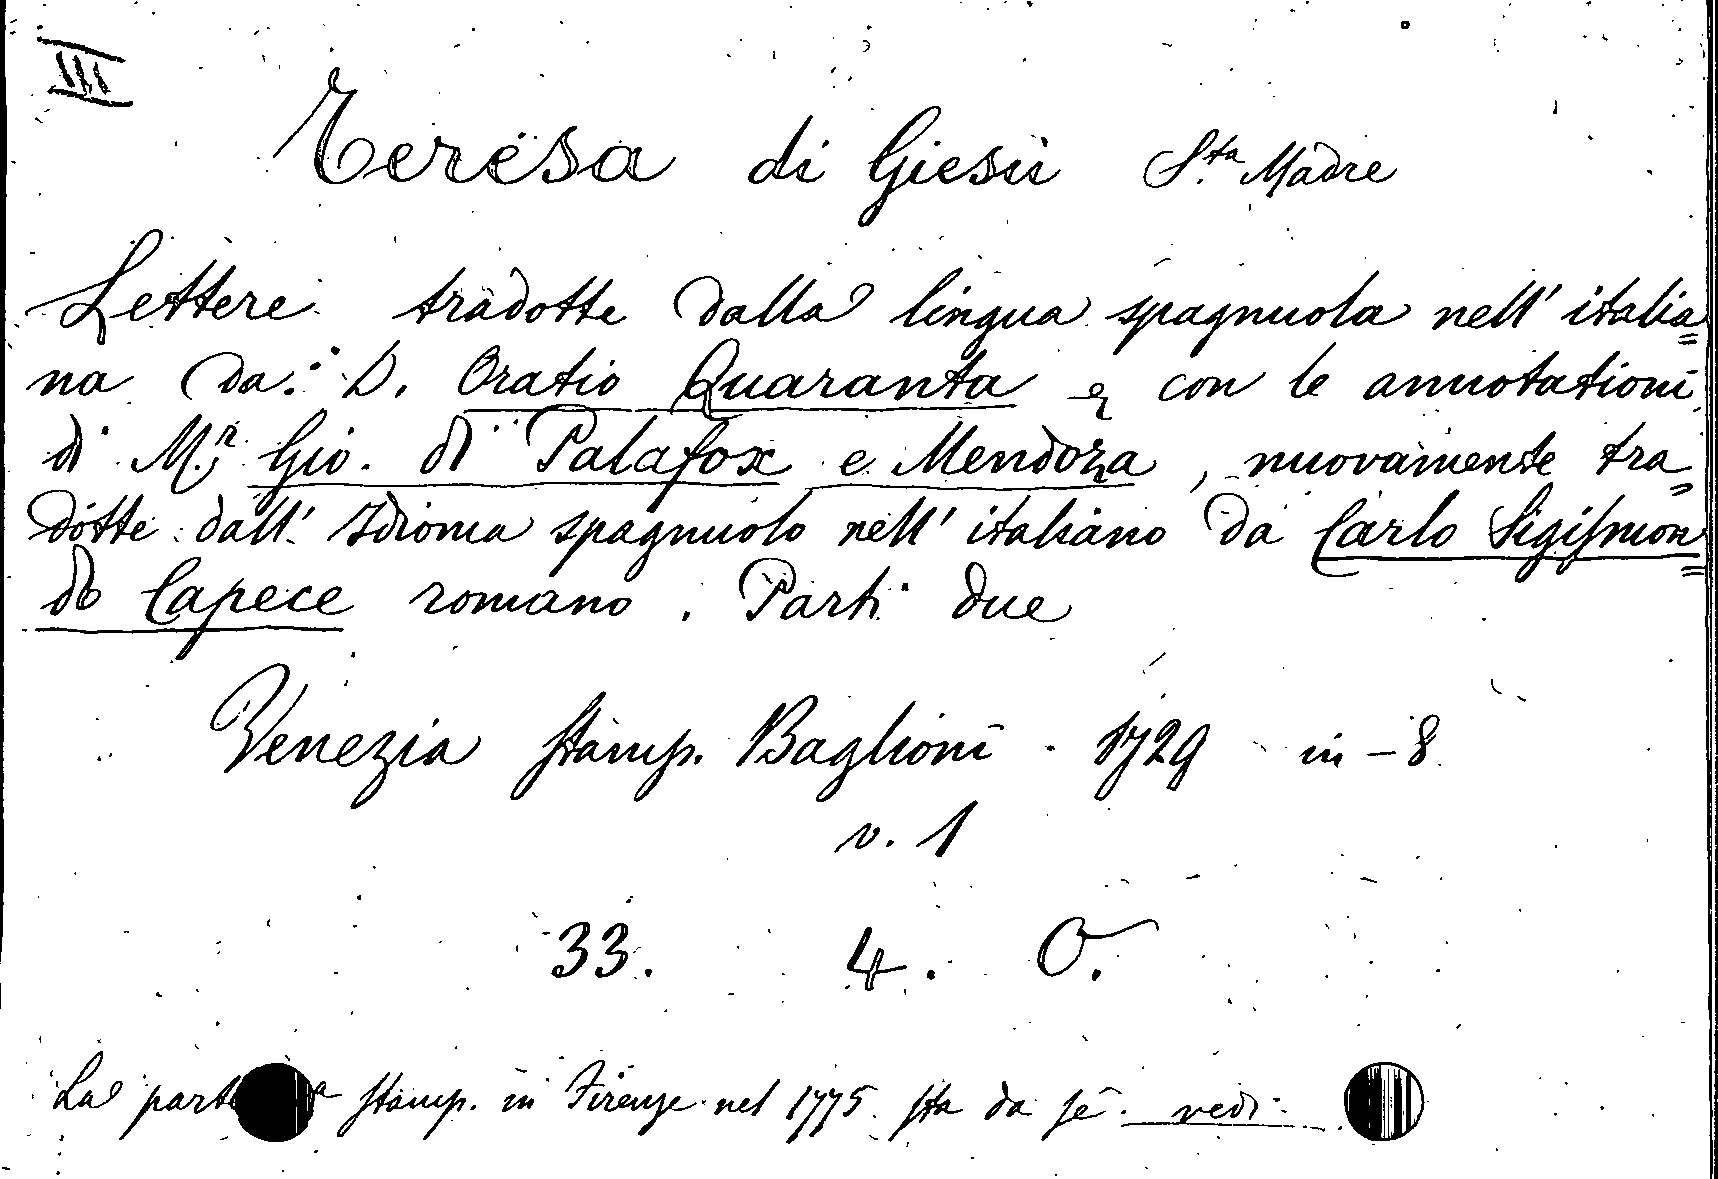 III
Teresa di Giesù S.ta Madre
Lettere tradotte dalla lingua spagnuola nell' italia=
na da D. Oratio Quaranta e con le annotationi
di M.r Gio. di Palafox e Mendoza, nuovamente tra=
dotte dall' Idioma spagnuolo nell' italiano da Carlo Sigismon=
do Capece romano. Parti due
Venezia stamp. Baglioni 1729 in-8
v. 1
33. 4. O.
La stamp. in Firenze nel 1775 sta da sé. vedi